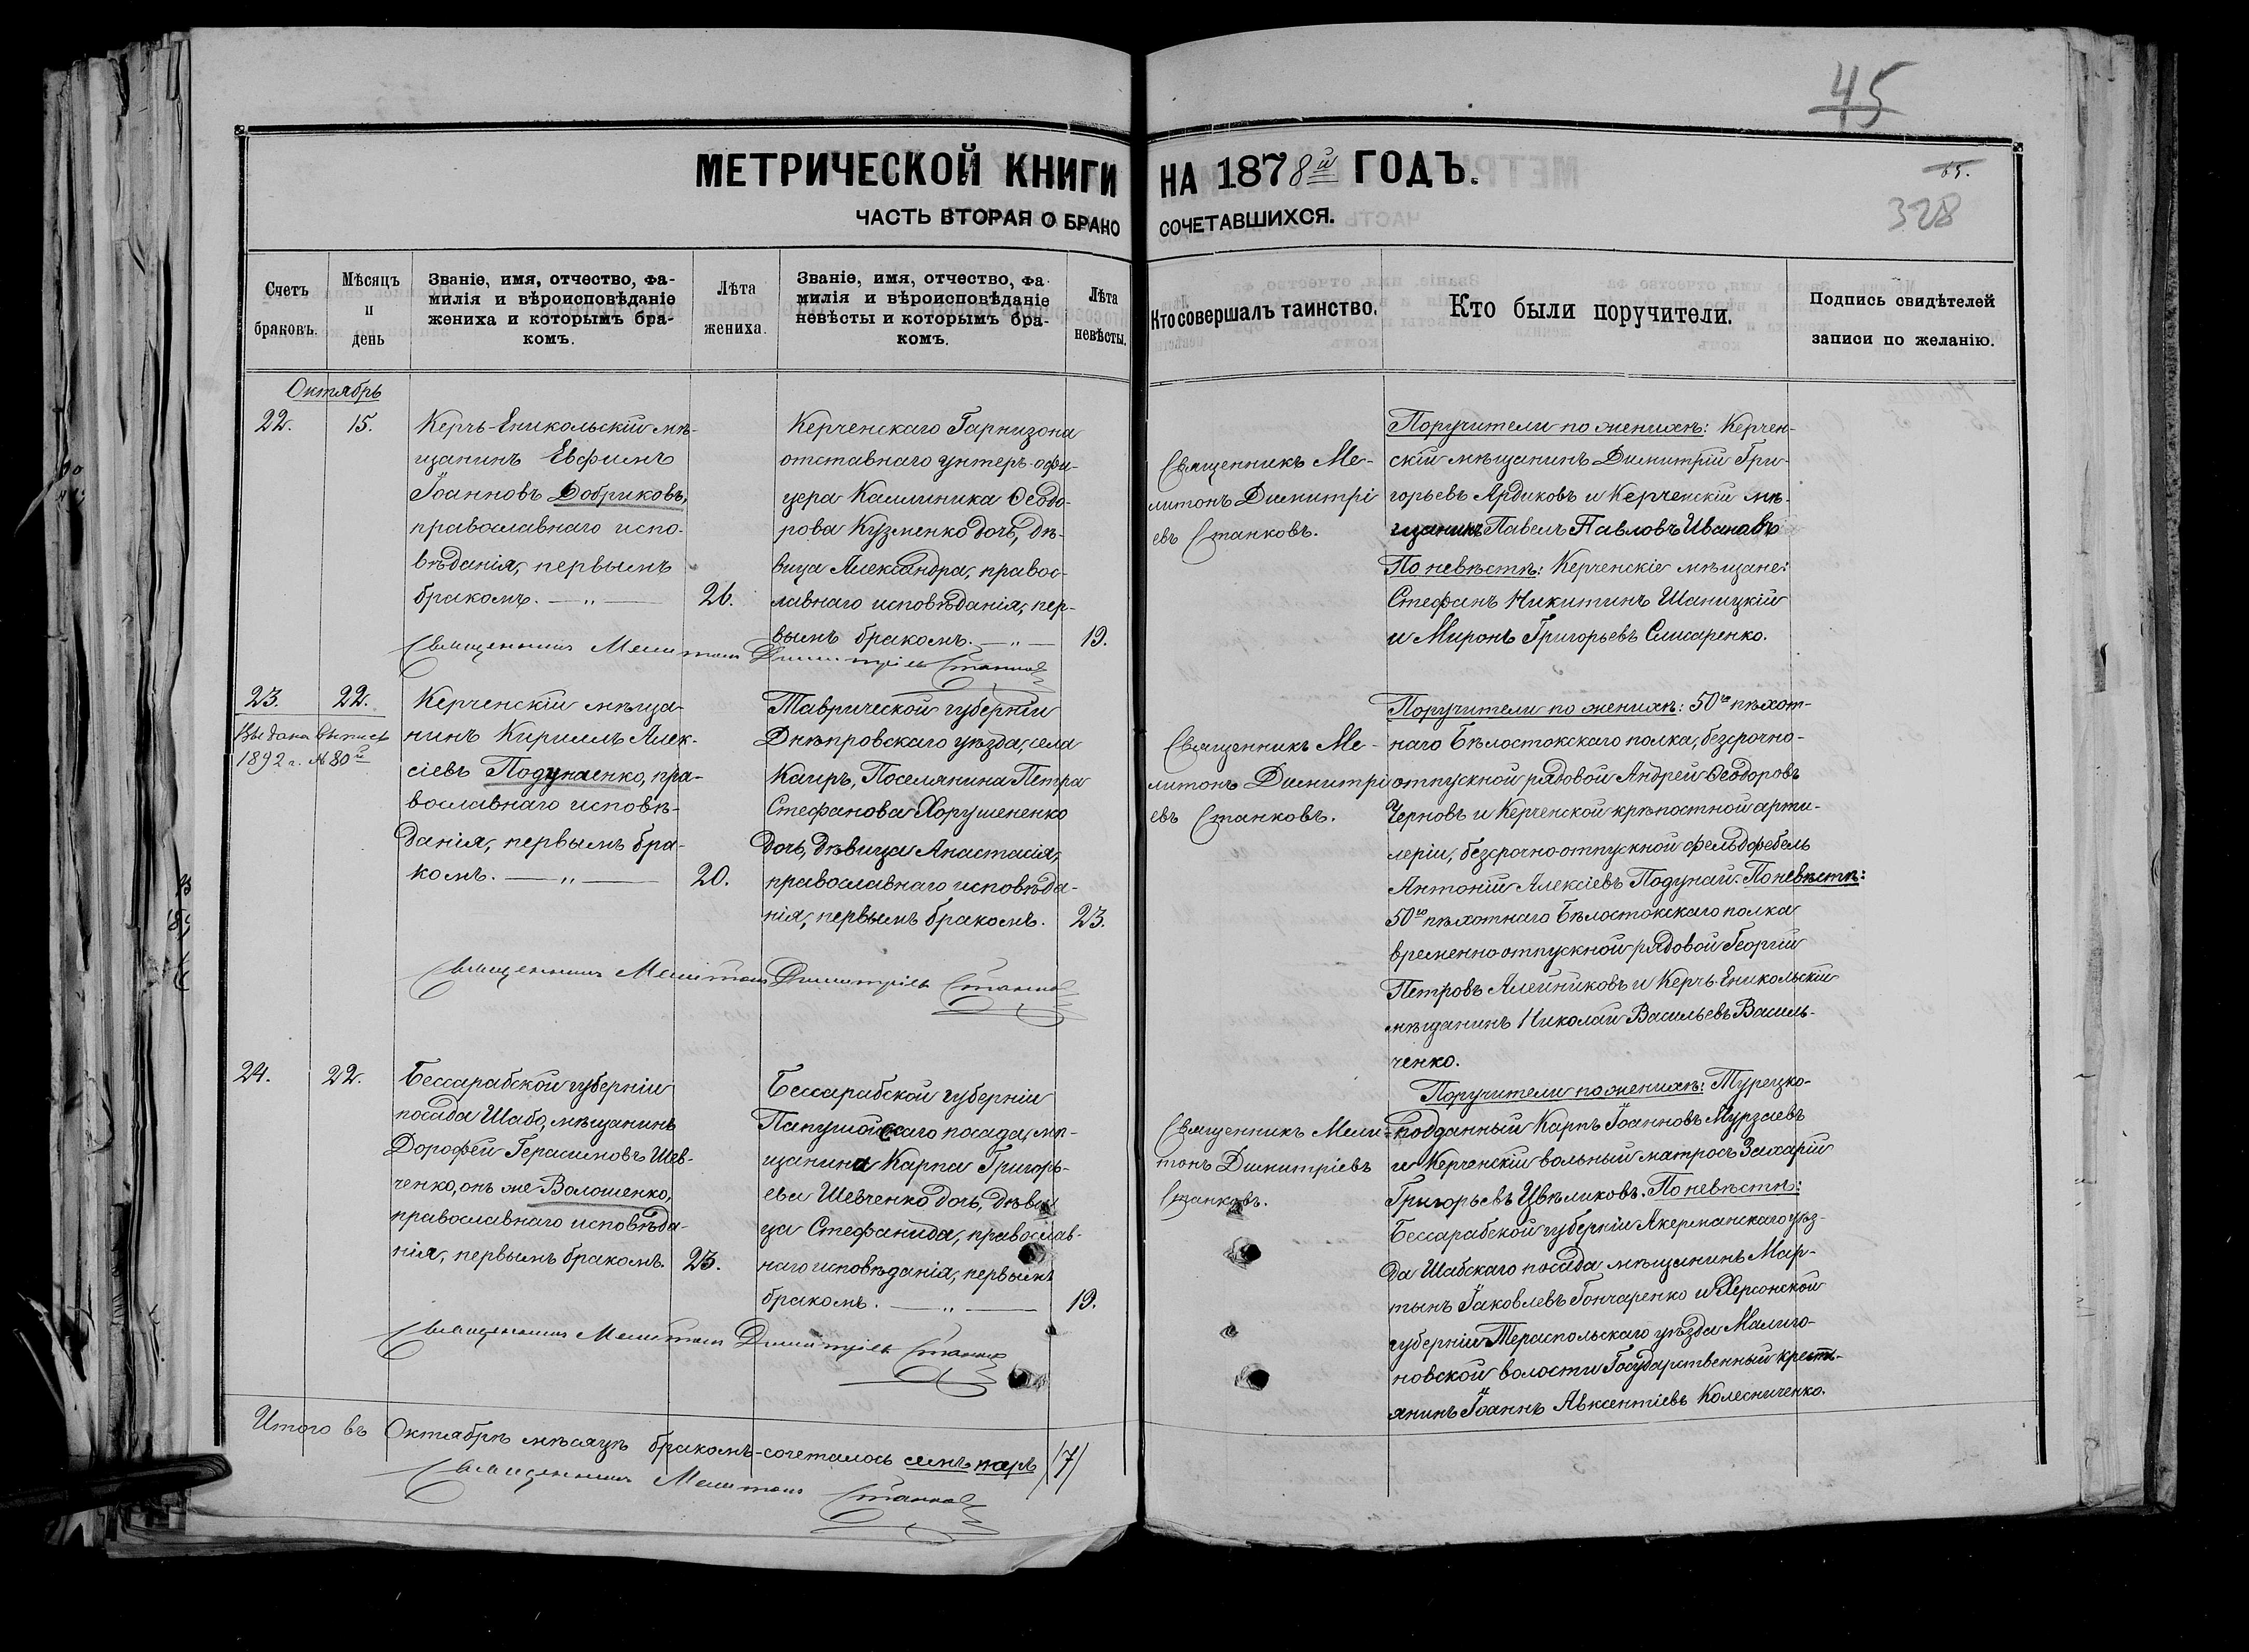 45
МЕТРИЧЕСКОЙ КНИГИ НА 1878й ГОДЪ.
65.
ЧАСТЬ ВТОРАЯ О БРАНО СОЧЕТАВШИХСЯ.
328
Счетъ браковъ.
Мѣсяцъ и день
Званіе, имя, отчество, фа-
милія и вѣроисповѣданіе
жениха и которымъ бра-
комъ.
Лѣта жениха.
Званіе, имя, отчество, фа-
милія и вѣроисповѣданіе
невѣсты и которымъ бра-
комъ.
Лѣта невѣсты.
Кто совершалъ таинство.
Кто были поручители.
Подпись свидѣтелей
записи по желанію.
Октябрь
22.
15.
Керчь-Еникольскій мѣ-
щанинъ Евфимъ
Іоанновъ Добриковъ,
православнаго испо-
вѣданія, первымъ
бракомъ. — „ —
26.
Керченскаго Гарнизона
отставнаго унтеръ-офи-
цера Каллиника Ѳеодо-
рова Кузменко дочь, дѣ-
вица Александра, правос-
лавнаго исповѣданія, пер-
вымъ бракомъ. — „ —
19.
Священникъ Ме-
литонъ Димитрі
евъ Станковъ.
Поручители по женихѣ: Керчен-
скій мѣщанинъ Димитрій Гри-
горьевъ Ардиковъ и Керченскій мѣ-
щанинъ Павелъ Павловъ Ивановъ
По невѣстѣ: Керченскіе мѣщане:
Стефанъ Никитинъ Шаницкій
и Миронъ Григорьевъ Слисаренко.
Священникъ Мелитонъ Димитріевъ Станковъ
23.
22.
Выдана выпись
1892 г. № 80й
Керченскій мѣща-
нинъ Кириллъ Алек-
сіевъ Подунаенко, пра-
вославнаго исповѣ-
данія, первымъ бра-
комъ. — „ —
20.
Таврической губерніи
Днѣпровскаго уѣзда, села
Каиръ, Поселянина Петра
Стефанова Хорушененко
дочь, дѣвица Анастасія,
православнаго исповѣда-
нія, первымъ бракомъ.
23.
Священникъ Ме-
литонъ Димитрі
евъ Станковъ.
Поручители по женихѣ: 50го пѣхот-
наго Бѣлостокскаго полка, безсрочно-
отпускной рядовой Андрей Ѳеодоровъ
Черновъ и Керченской крѣпостной арти-
леріи, безсрочно-отпускной фельдфебель
Антоній Алексіевъ Подунай. По невѣстѣ:
50го пѣхотнаго Бѣлостокскаго полка
временно-отпускной рядовой Георгій
Петровъ Алейниковъ и Керчь-Еникольскій
мѣщанинъ Николай Васильевъ Василь-
ченко.
Священникъ Мелитонъ Димитріевъ Станковъ
24.
22.
Бессарабской губерніи
посада Шабо, мѣщанинъ
Дорофей Герасимовъ Шев-
ченко, онъ же Волошенко,
православнаго исповѣда-
нія, первымъ бракомъ.
23.
Бессарабской губерніи
Папушойскаго посада, мѣ-
щанина Карпа Григорь-
ева Шевченко дочь, дѣви-
ца Стефанида, православ-
наго исповѣданія, первымъ
бракомъ. — „ —
19.
Священникъ Мели-
тонъ Димитріевъ
Станковъ.
Поручители по женихѣ: Турецко-
подданный Карпъ Іоанновъ Мурзаевъ
и Керченскій вольный матросъ Захарій
Григорьевъ Цвѣликовъ. По невѣстѣ:
Бессарабской губерніи Акерманскаго уѣз-
да Шабскаго посада мѣщанинъ Мар-
тынъ Іаковлевъ Гончаренко и Херсонской
губерніи Тераспольскаго уѣзда Малиго-
новской волости Государственный крестъ-
янинъ Іоаннъ Авксентіевъ Колесниченко.
Священникъ Мелитонъ Димитріевъ Станковъ
Итого въ Октябрѣ мѣсяцѣ бракомъ-сочеталось семь паръ /7/
Священникъ Мелитонъ Станковъ